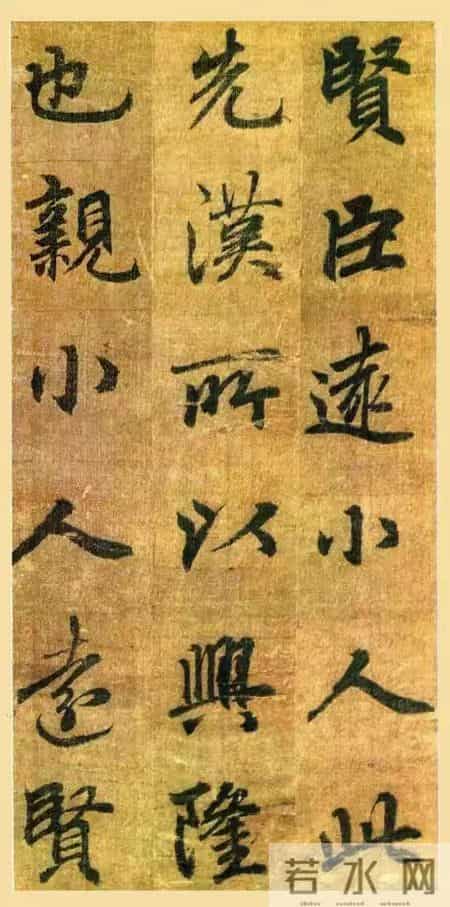 賢臣遠小人此
先漢所以興隆
也親小人遠賢
若水网